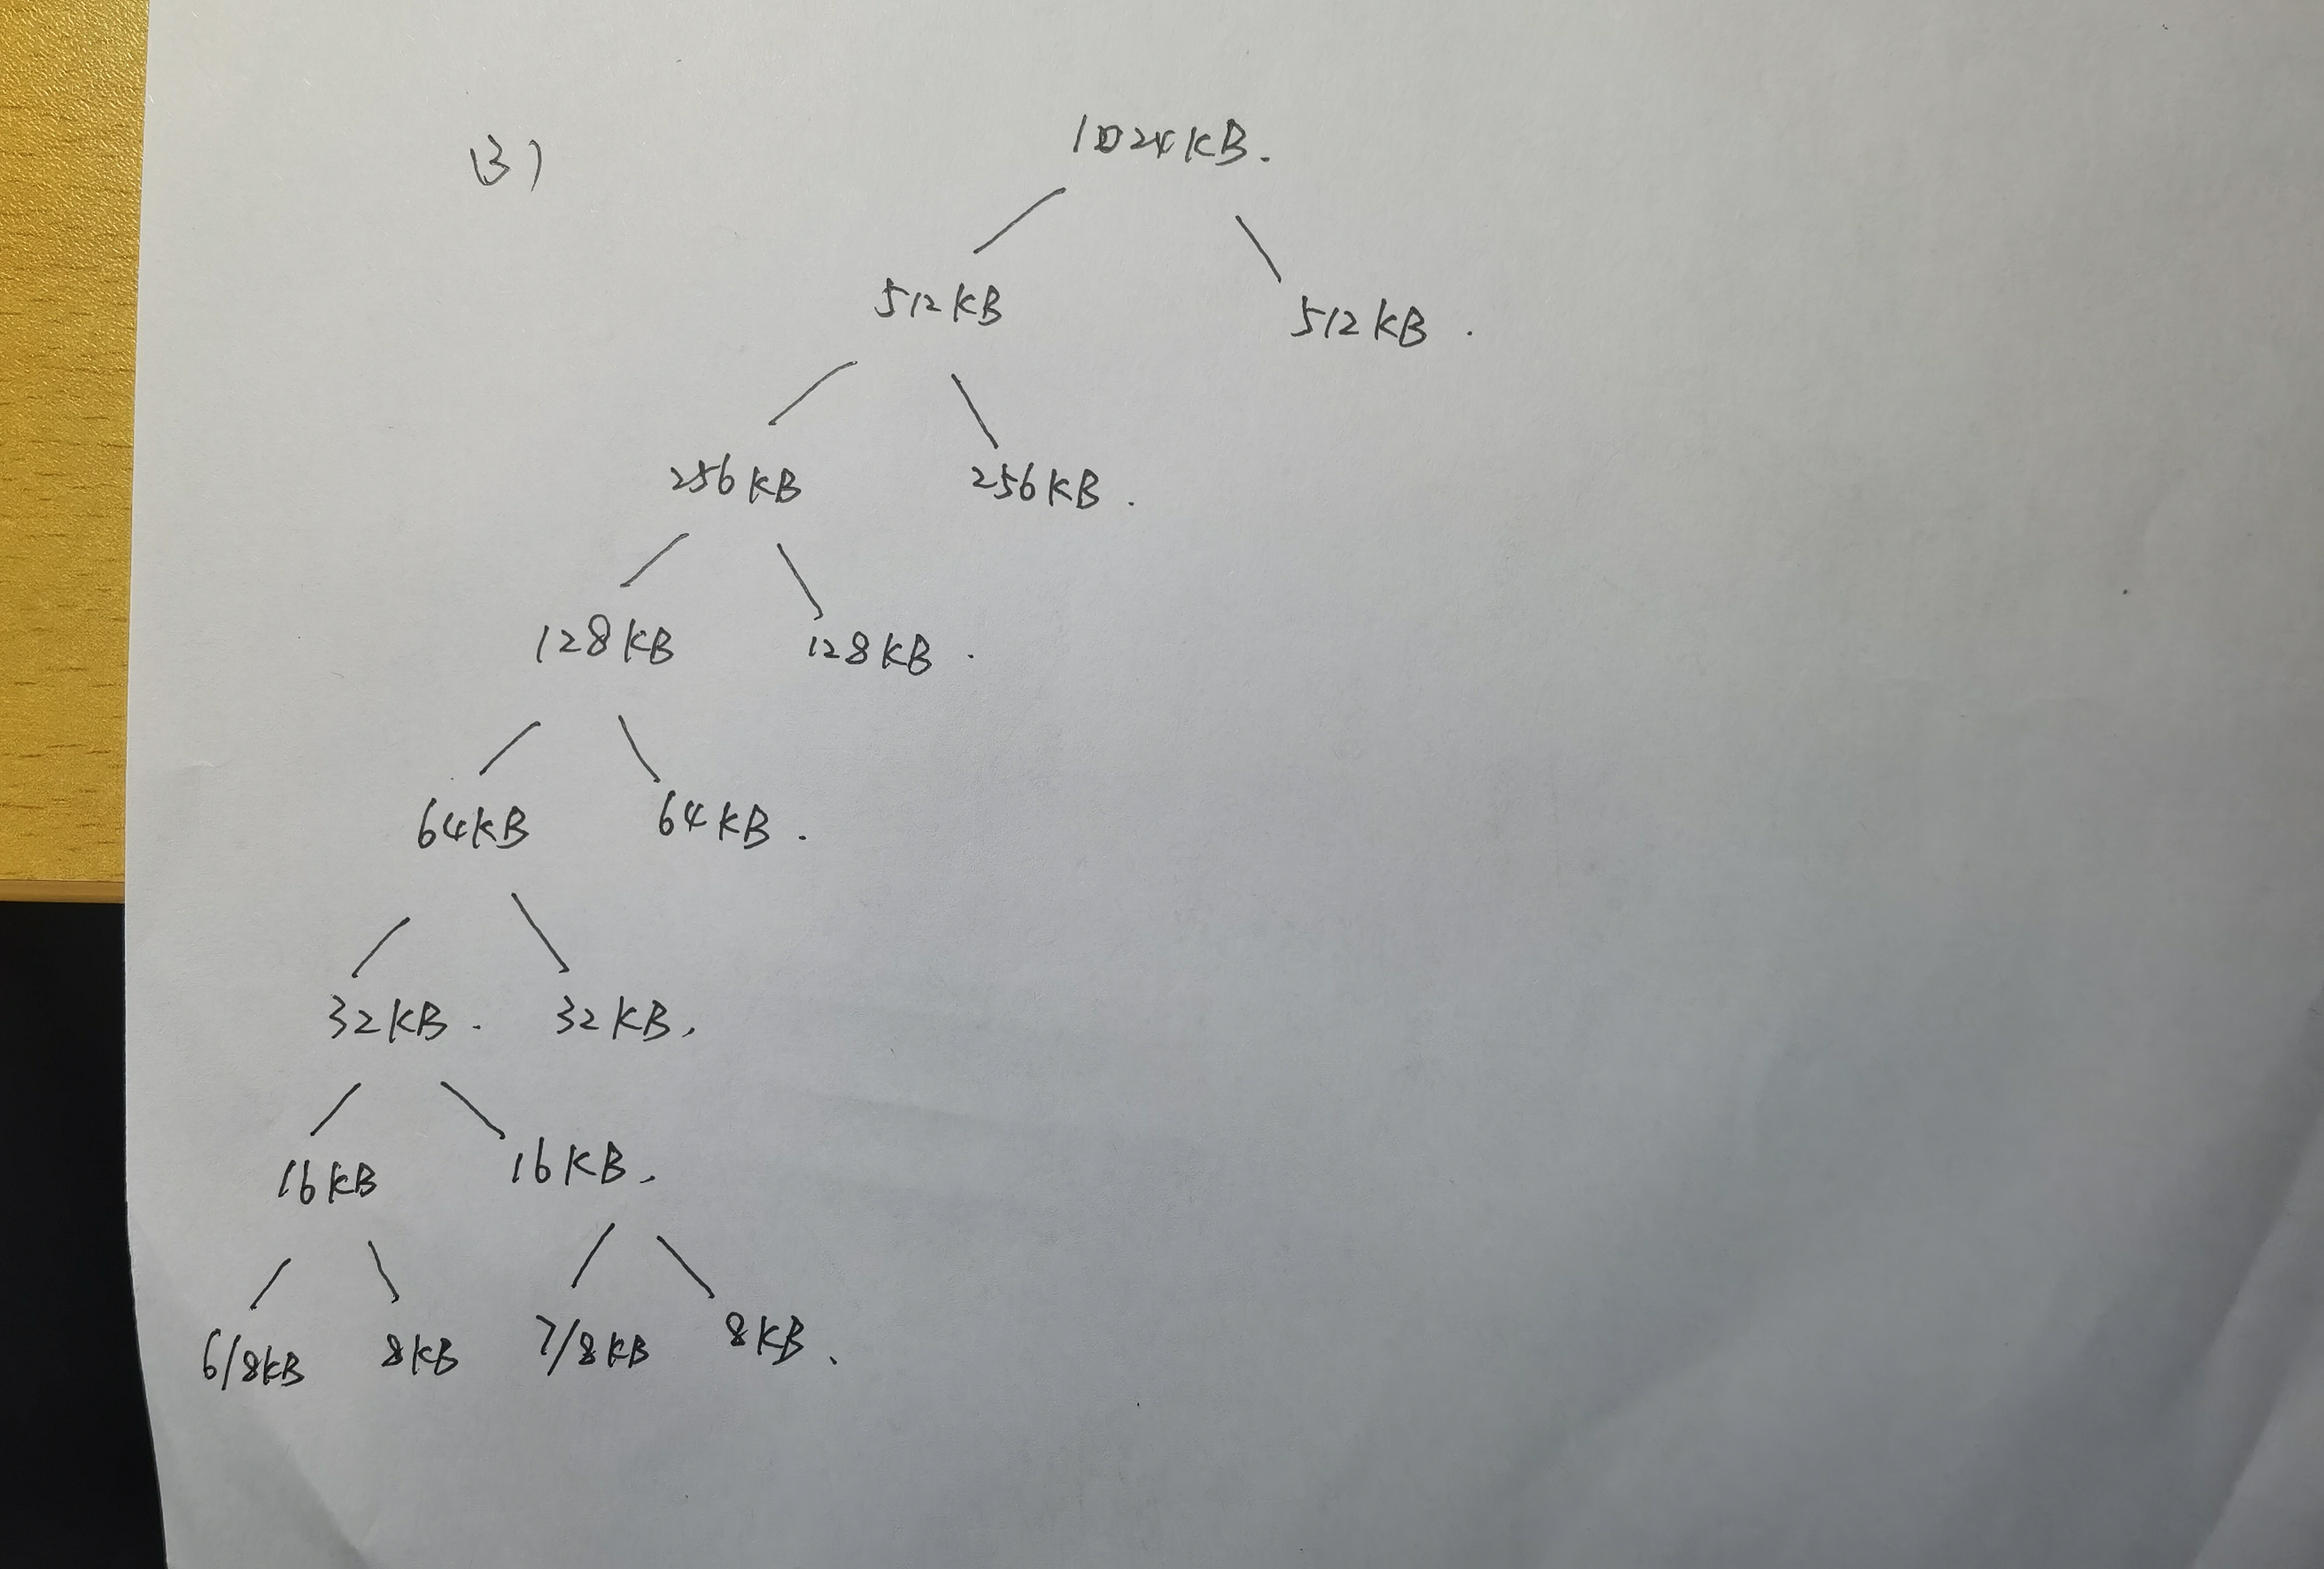 (3) 1024KB.
512KB 512KB.
256KB 256KB.
128KB 128KB.
64KB 64KB.
32KB. 32KB,
16KB 16KB,
6/8KB 8KB 7/8KB 8KB.